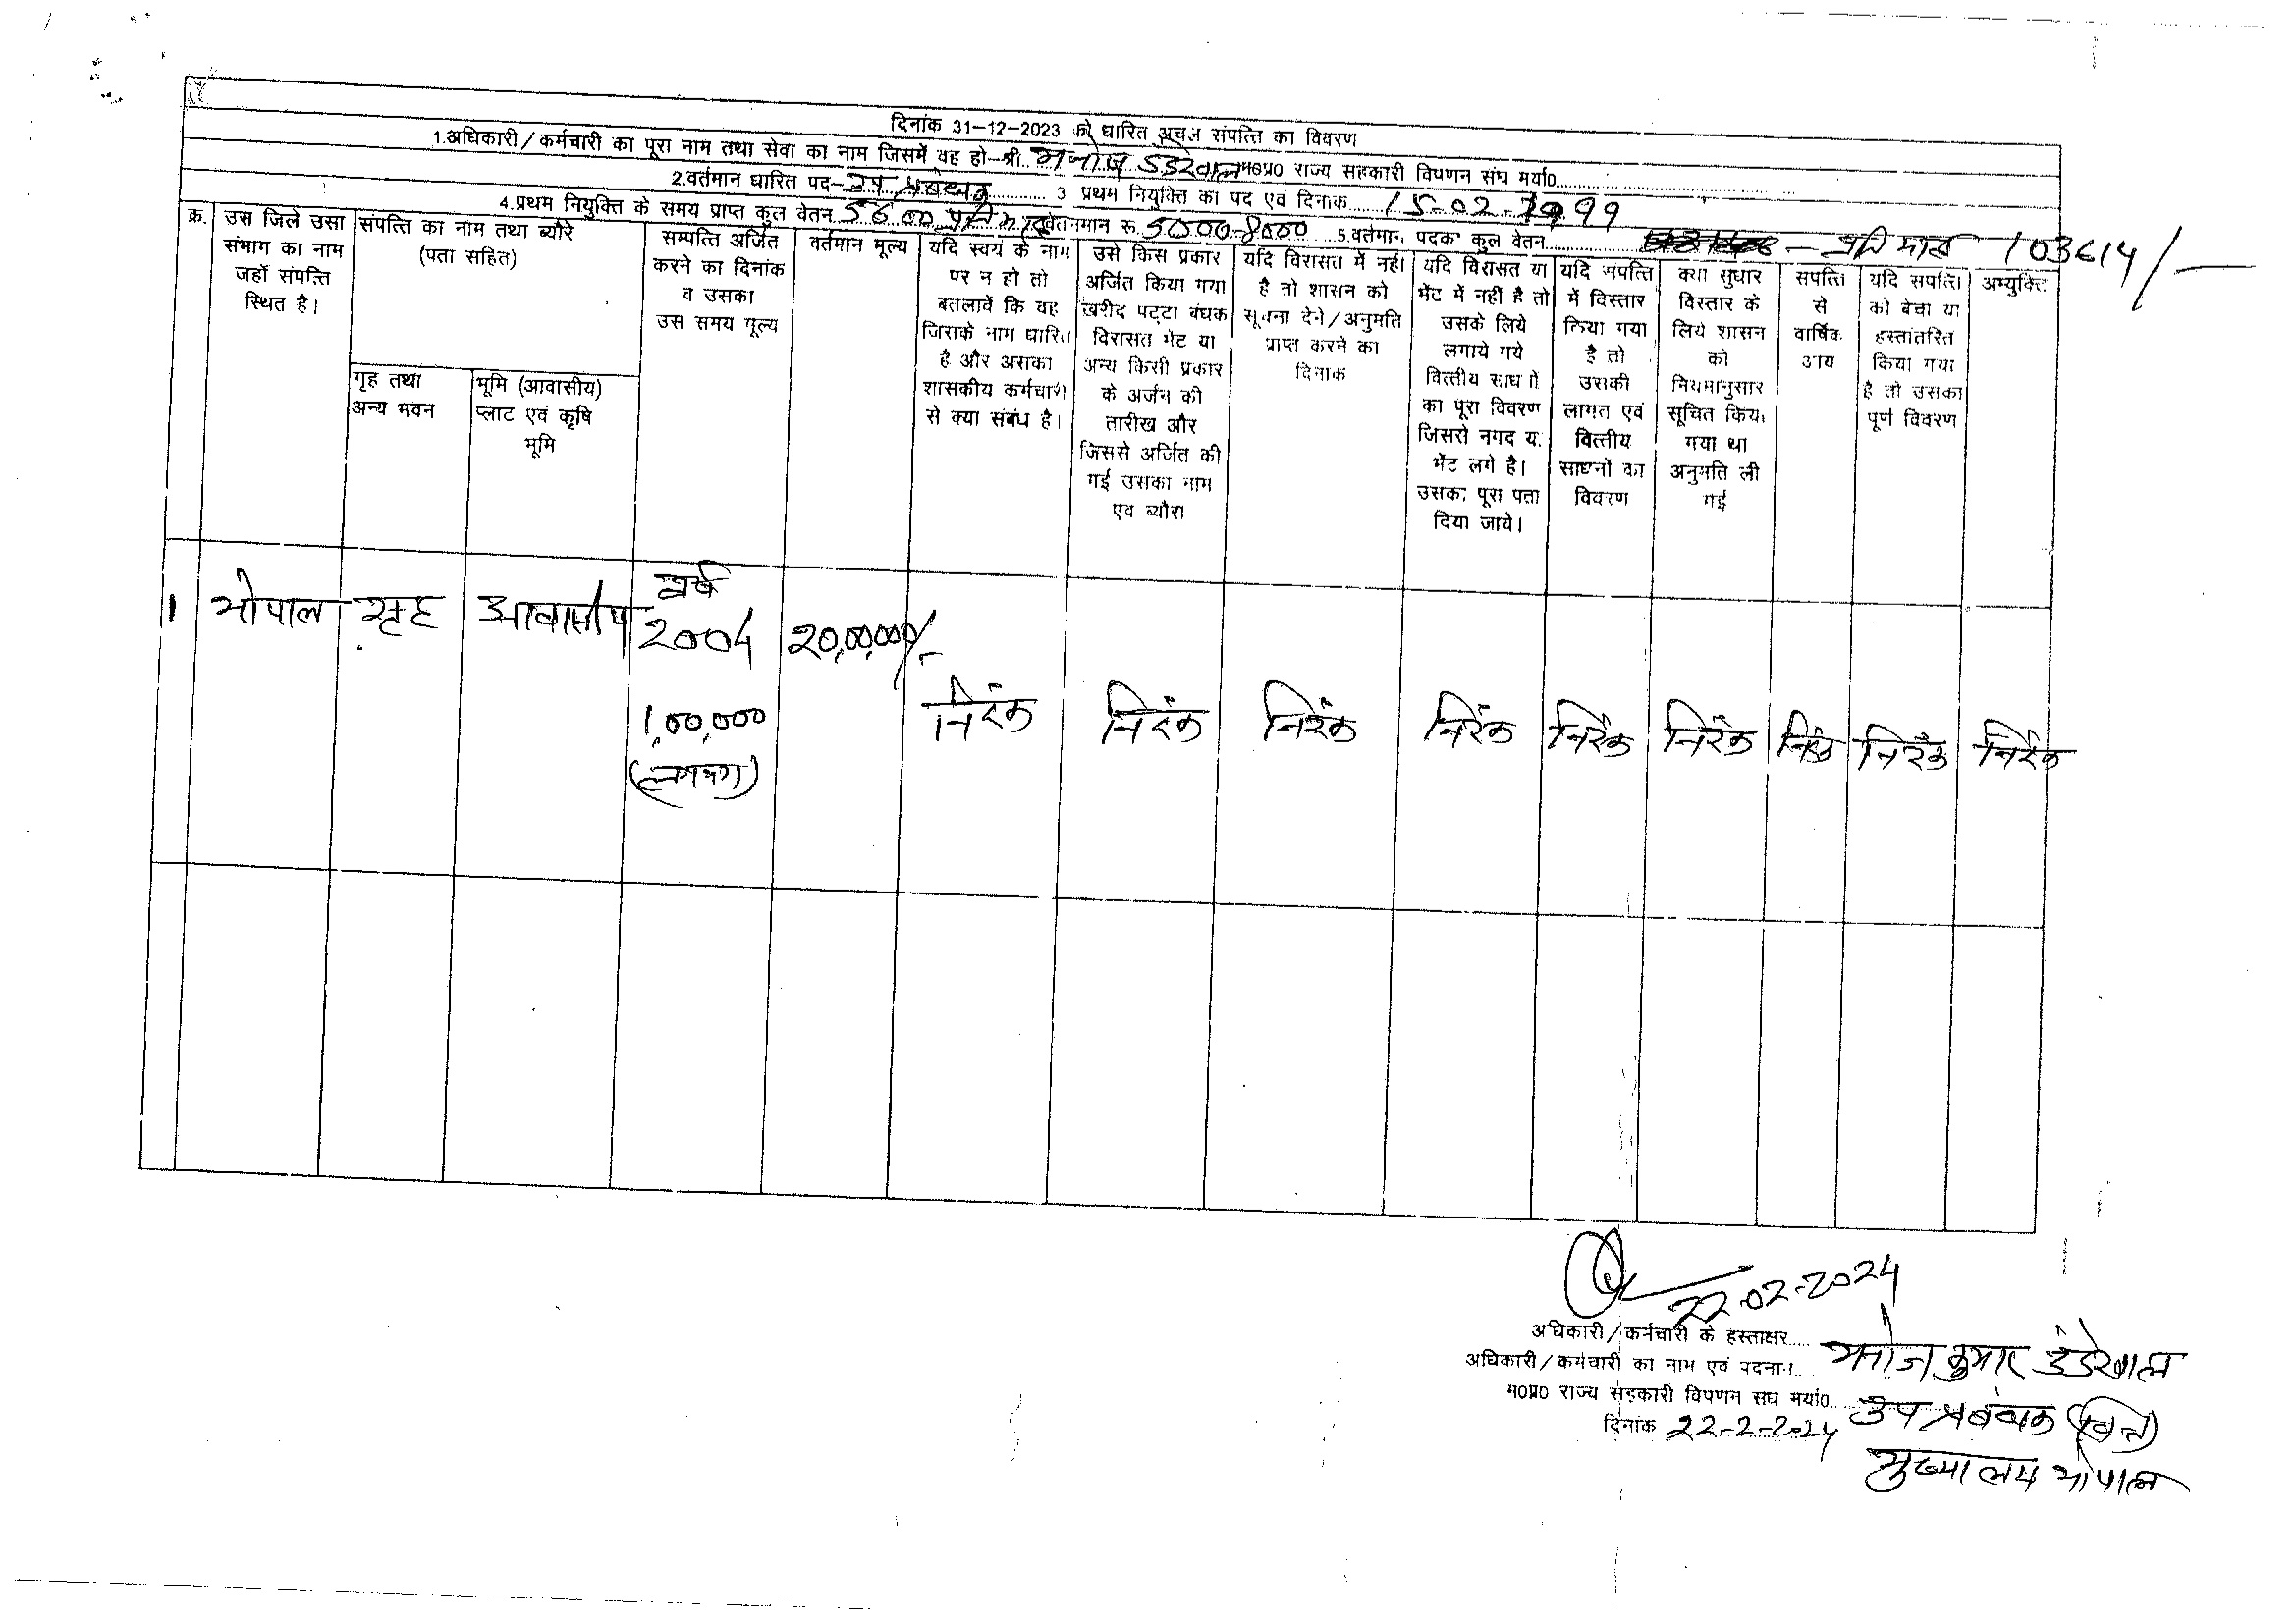 दिनांक 31-12-2023 को धारित अचल संपत्ति का विवरण
1.अधिकारी/कर्मचारी का पूरा नाम तथा सेवा का नाम जिसमें वह हो-श्री.. मनोज डंडेरवाल म०प्र० राज्य सहकारी विपणन संघ मर्या०
2.वर्तमान धारित पद- उप प्रबंधक 3 प्रथम नियुक्ति का पद एवं दिनांक 15-02-1999
4.प्रथम नियुक्ति के समय प्राप्त कुल वेतन 5600 प्रति माह वेतनमान रू. 5000-8000 5.वर्तमान पदक कुल वेतन - प्रति माह 103614/-
क्र. उस जिले उसा संभाग का नाम जहाँ संपत्ति स्थित है।
संपत्ति का नाम तथा ब्यौरे (पता सहित)
गृह तथा अन्य भवन
भूमि (आवासीय) प्लाट एवं कृषि भूमि
सम्पत्ति अर्जित करने का दिनांक व उसका उस समय मूल्य
वर्तमान मूल्य
यदि स्वयं के नाम पर न हो तो बतलावें कि वह जिसके नाम धारित है और असका शासकीय कर्मचारी से क्या संबंध है।
उसे किस प्रकार अर्जित किया गया खरीद पट्टा बंधक विरासत भेंट या अन्य किसी प्रकार के अर्जन की तारीख और जिससे अर्जित की गई उसका नाम एव ब्यौरा
यदि विरासत में नहीं है तो शासन को सूचना देने/अनुमति प्राप्त करने का दिनांक
यदि विरासत या भेंट में नहीं है तो उसके लिये लगाये गये वित्तीय साधनों का पूरा विवरण जिससे नगद या भेंट लगे है। उसका पूरा पता दिया जाये।
यदि संपत्ति में विस्तार किया गया है तो उसकी लागत एवं वित्तीय साधनों का विवरण
क्या सुधार विस्तार के लिये शासन को नियमानुसार सूचित किया गया था अनुमति ली गई
सपत्ति से वार्षिक आय
यदि सपत्ति को बेचा या हस्तांतरित किया गया है तो उसका पूर्ण विवरण
अभ्युक्ति
1 भोपाल गृह आवासीय वर्ष 2004 20,00,000/-
1,00,000 (लगभग)
निरंक निरंक निरंक निरंक निरंक निरंक निरंक निरंक निरंक
22-02-2024
अधिकारी/कर्मचारी के हस्ताक्षर
अधिकारी/कर्मचारी का नाम एवं पदनाम.. मनोज कुमार डंडेरवाल
म०प्र० राज्य सहकारी विपणन संघ मर्या० उप प्रबंधक (वित्त)
दिनांक 22-2-2024
मुख्यालय भोपाल